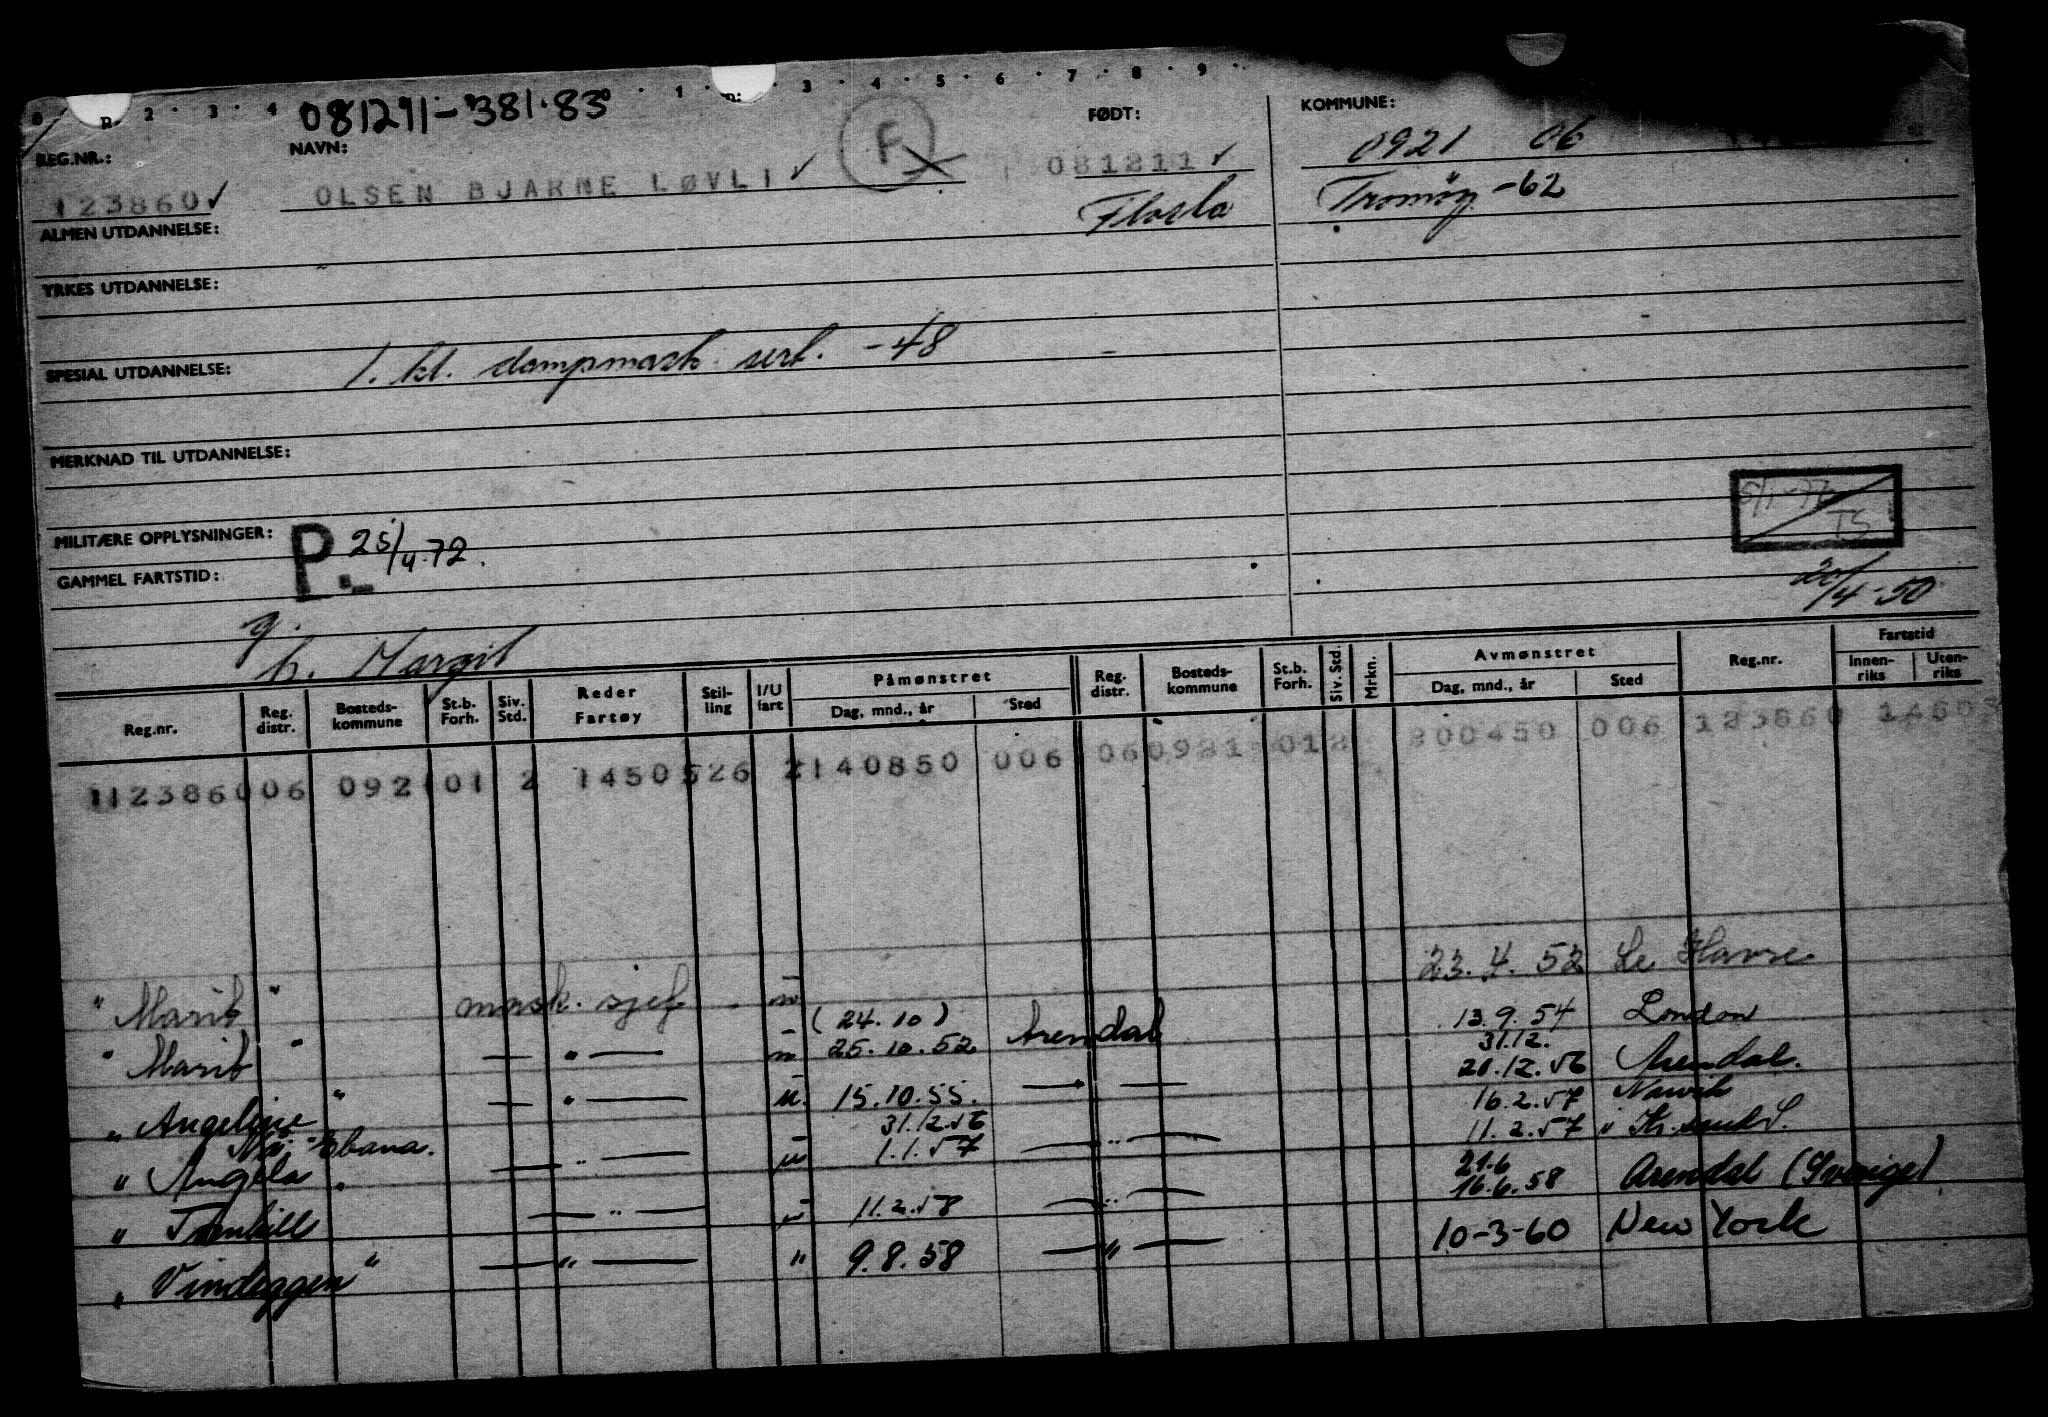 0 2 3 4 1 3 4 5 6 7 8 9
081211-381.83
REG.NR.: NAVN: F FØDT: KOMMUNE:
123860 OLSEN BJARNE LØVLI 081211 0921 06
Flosta Tromøy -62
ALMEN UTDANNELSE:
YRKES UTDANNELSE:
SPESIAL UTDANNELSE: 1. kl. dampmask. sert. -48
MERKNAD TIL UTDANNELSE:
MILITÆRE OPPLYSNINGER: P. 25/4-72.
TS
GAMMEL FARTSTID:
20/4-50
g.
h. Margit
Reg.nr. Reg. distr. Bosteds-kommune St.b. Forh. Siv. Std. Reder Fartøy Stil-ling I/U fart Påmønstret Dag, mnd., år Sted Reg. distr. Bosteds-kommune St.b. Forh. Siv. Std. Mrkn. Avmønstret Dag, mnd., år Sted Reg.nr. Fartstid Innen-riks Uten-riks
06 0921 01 2 200450 006 123860
1123860 06 0921 01 2 1450 526 2 140850 006
" Marit " mask. sjef u 23.4.52 Le Havre.
(24.10)
" Marit " — " — u 25.10.52 Arendal 13.9.54 London
31.12.
" Angeline " — " — u. 15.10.55. — " — 20.12.56 Arendal.
31.12.56 16.2.57 Narvik
" Angela " — " — u 1.1.57 — " — 11.2.57 " Kr.sand S.
21.6
" — " — u 11.2.58 — " — 16.6.58 Arendal (Sverige)
" Vindeggen " — " — " 9.8.58 — " — 10-3-60 New York